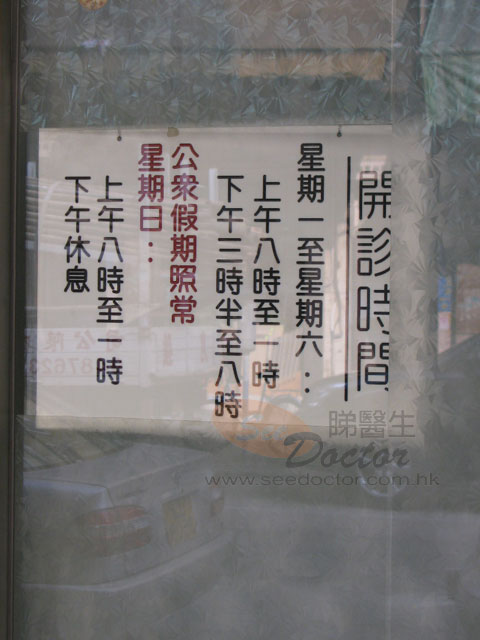 開診時間
星期一至星期六：
上午八時至一時
下午三時半至八時
公衆假期照常
星期日：
上午八時至一時
下午休息
睇醫生
Doctor
www.seedoctor.com.hk